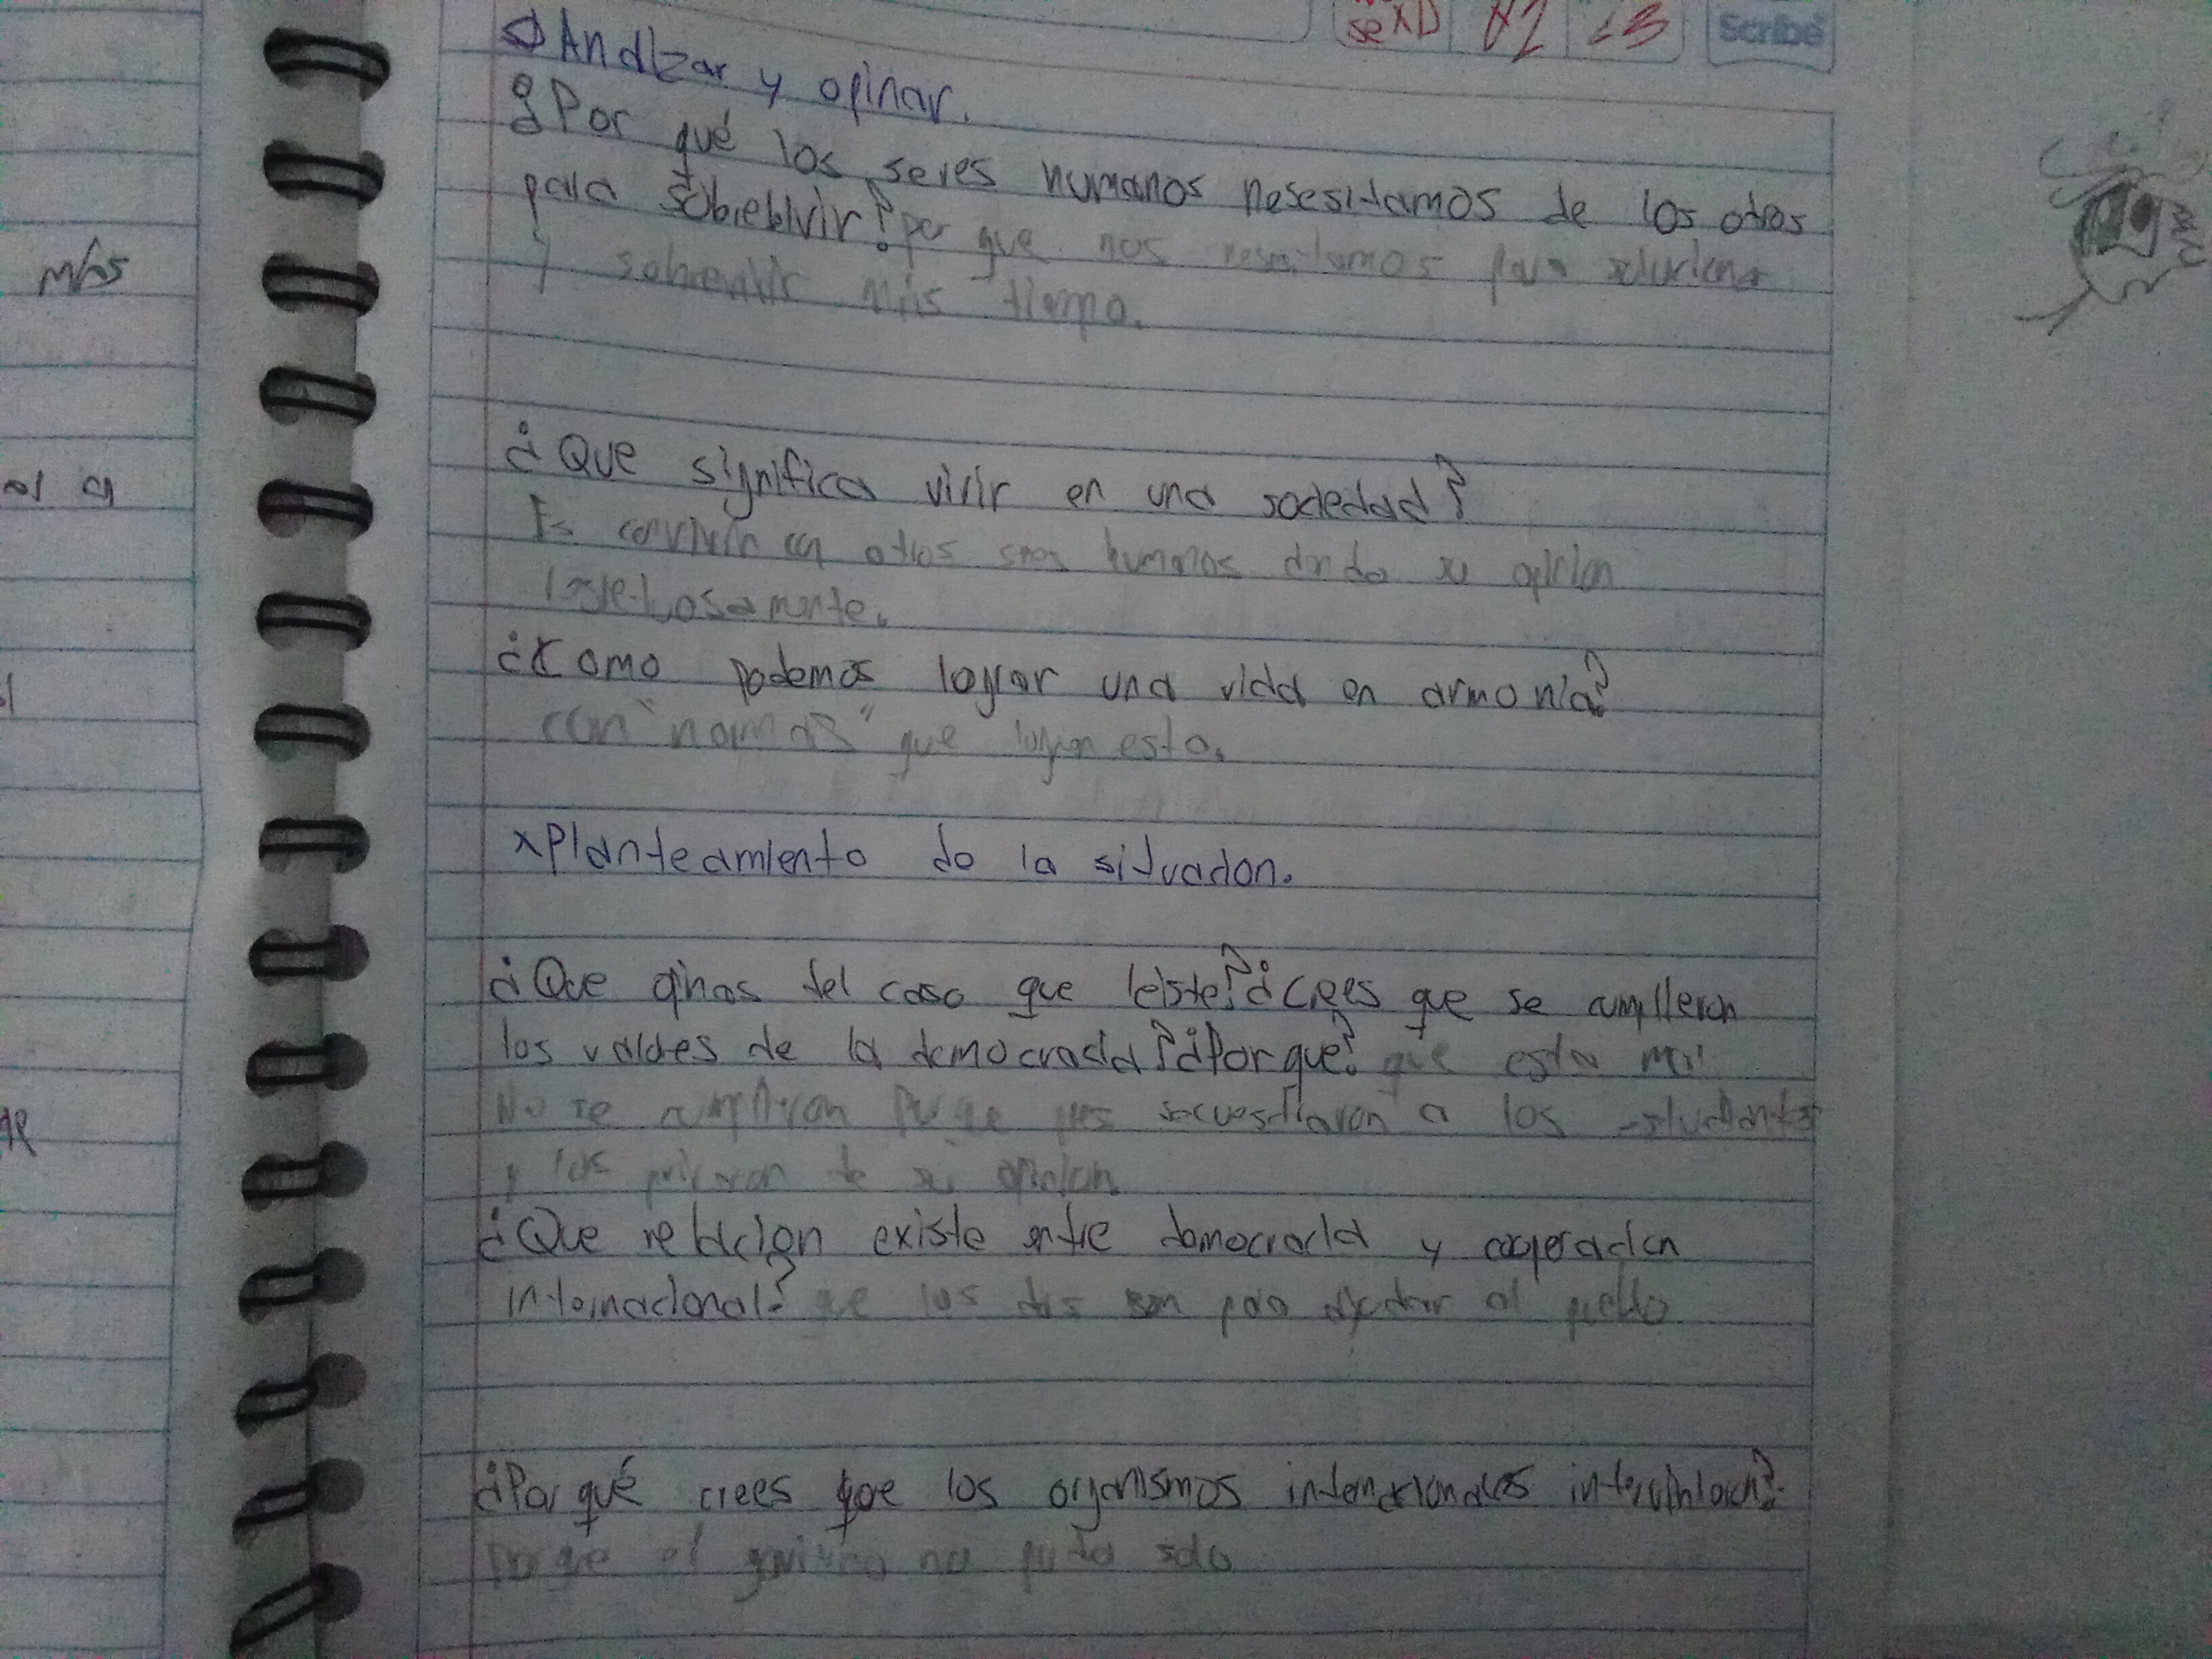 seXD
Scribe
Analizar y opinar.
¿Por qué los seres humanos nesesitamos de los otros
para sobrebivir? por que nos nesesitamos para
y sobrevivir más tiempo.
más
¿Que significa vivir en una sociedad?
Es convivir con otros seres humanos dando su opinion
¿Como podemos lograr una vida en armonía?
con "normas" que logren esto.
xPlanteamiento de la situacion.
¿Que opinas del caso que leiste? ¿crees que se cumplieron
los valores de la democracia? ¿Por que? que esta mal
No se cumplieron secuestraron a los estudiantes
y los privaron de su opinion
¿Que relacion existe entre democracia y cooperacion
internacional? que los dos son para ayudar al pueblo
¿Por qué crees que los organismos internacionales intervinieron?
Porque el gobierno no pudo solo